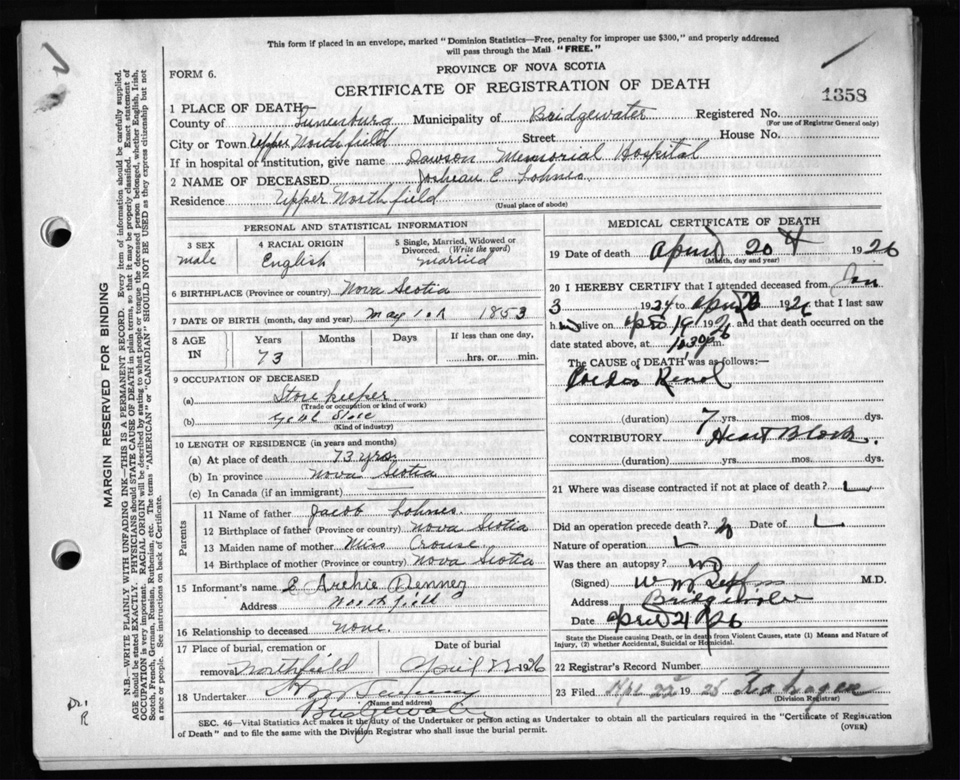 This form if placed in an envelope, marked "Dominion Statistics—Free, penalty for improper use $300," and properly addressed
will pass through the Mail "FREE."
PROVINCE OF NOVA SCOTIA
FORM 6.
CERTIFICATE OF REGISTRATION OF DEATH
1358
1 PLACE OF DEATH—
County of Lunenburg Municipality of Bridgewater Registered No.
(For use of Registrar General only)
City or Town Upper Northfield Street House No.
If in hospital of institution, give name Dawson Memorial Hospital
2 NAME OF DECEASED E Lohnes
Residence Upper Northfield
(Usual place of abode)
PERSONAL AND STATISTICAL INFORMATION
3 SEX
male
4 RACIAL ORIGIN
English
5 Single, Married, Widowed or
Divorced. (Write the word)
married
6 BIRTHPLACE (Province or country) Nova Scotia
7 DATE OF BIRTH (month, day and year) May 1853
8 AGE
IN
Years
73
Months
Days
If less than one day,
hrs. or min.
9 OCCUPATION OF DECEASED
(a) Store keeper
(Trade or occupation or kind of work)
(b) Genl Store
(Kind of industry)
10 LENGTH OF RESIDENCE (in years and months)
(a) At place of death 73 yrs
(b) In province Nova Scotia
(c) In Canada (if an immigrant)
Parents
11 Name of father Jacob Lohnes
12 Birthplace of father (Province or country) Nova Scotia
13 Maiden name of mother Miss Crouse
14 Birthplace of mother (Province or country) Nova Scotia
15 Informant's name Archie
Address Northfield
16 Relationship to deceased none.
17 Place of burial, cremation or
removal Northfield
Date of burial
April 22 1926
18 Undertaker
(Name and address)
Bridgewater
MEDICAL CERTIFICATE OF DEATH
19 Date of death April 20 1926
(Month, day and year)
20 I HEREBY CERTIFY that I attended deceased from Jan
3 1924 to April 20 1926 that I last saw
h alive on April 19 1926 and that death occurred on the
date stated above, at 10.30 p m.
The CAUSE of DEATH was as follows:—
Cardio Renal
(duration) 7 yrs. mos. dys.
CONTRIBUTORY Heart Block.
(duration) yrs. mos. dys.
21 Where was disease contracted if not at place of death?
Did an operation precede death? Date of
Nature of operation
Was there an autopsy?
(Signed) M.D.
Address Bridgewater
Date April 21/26
State the Disease causing Death, or in death from Violent Causes, state (1) Means and Nature of
Injury, (2) whether Accidental, Suicidal or Homicidal.
22 Registrar's Record Number
23 Filed Apl 22 1925
(Division Registrar)
SEC. 46—Vital Statistics Act makes it the duty of the Undertaker or person acting as Undertaker to obtain all the particulars required in the "Certificate of Registration
of Death" and to file the same with the Division Registrar who shall issue the burial permit.
(OVER)
MARGIN RESERVED FOR BINDING
N.B.—WRITE PLAINLY WITH UNFADING INK—THIS IS A PERMANENT RECORD. Every item of information should be carefully supplied.
AGE should be stated EXACTLY. PHYSICIANS should STATE CAUSE OF DEATH in plain terms, so that it may be properly classified. Exact statement of
OCCUPATION is very important. RACIAL ORIGIN will be described by stating to what people or tongue the deceased person belonged, whether English, Irish,
Scotch, French, German, Russian, Ruthenian, etc. The terms "AMERICAN" or "CANADIAN" SHOULD NOT BE USED as they express citizenship but not
a race or people. See instructions on back of Certificate.